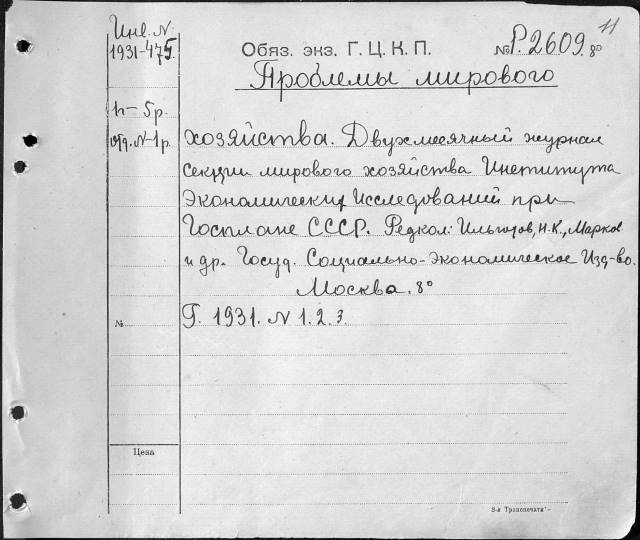 11
Инв. N.
1931-475.
Обяз. экз. Г. Ц. К. П.
№ Р. 2609. 8°
Проблемы мирового
п— 5р.
отд. N-1р.
хозяйства. Двухмесячный журнал
секции мирового хозяйства Института
Экономических Исследований при
Госплане СССР. Редкол: Н.К., Марков
и др. Госуд. Социально-Экономическое Изд-во.
Москва. 8°
№
Г. 1931. N 1. 2. 3.
Цена